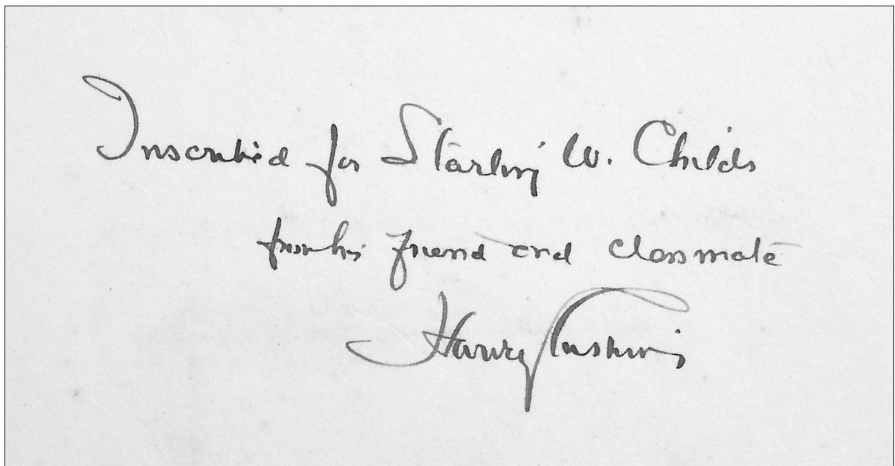 Inscribed for Starling W. Childs
from his friend and classmate
Harvey Cushing